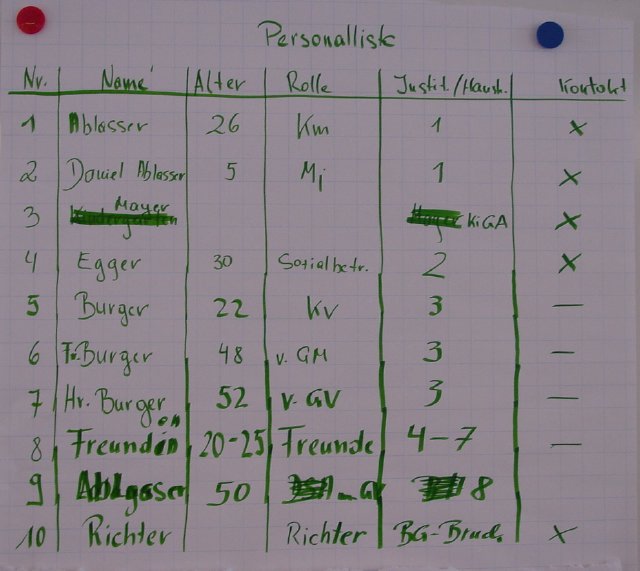 Personalliste
Nr. Name Alter Rolle Instit./Haush. Kontakt
1 Ablasser 26 Km 1 x
2 Daniel Ablasser 5 Mj 1 x
3 Mayer KiGA x
4 Egger 30 Sozialbetr. 2 x
5 Burger 22 Kv 3 —
6 Fr. Burger 48 v. GM 3 —
7 Hr. Burger 52 v. GV 3 —
8 Freunden 20-25 Freunde 4-7 —
9 50 8
10 Richter Richter BG-Bruck x